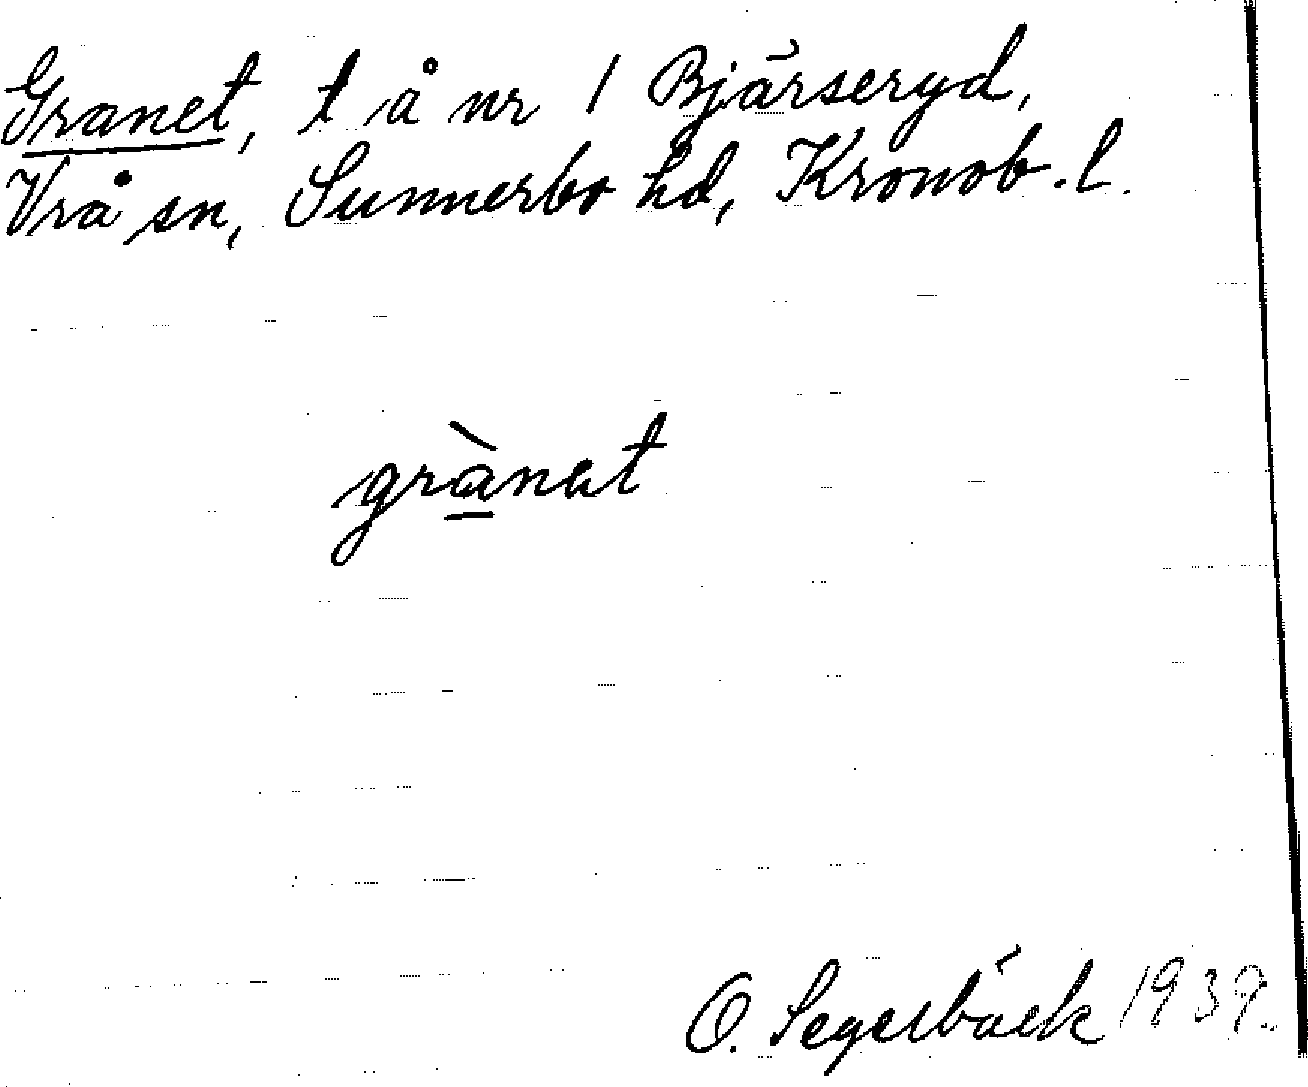 Granet, t å nr 1 Bjärseryd,
Vrå sn, Sunnerbo hd, Kronob. l.
grànet
O. Segerbäck 1939.